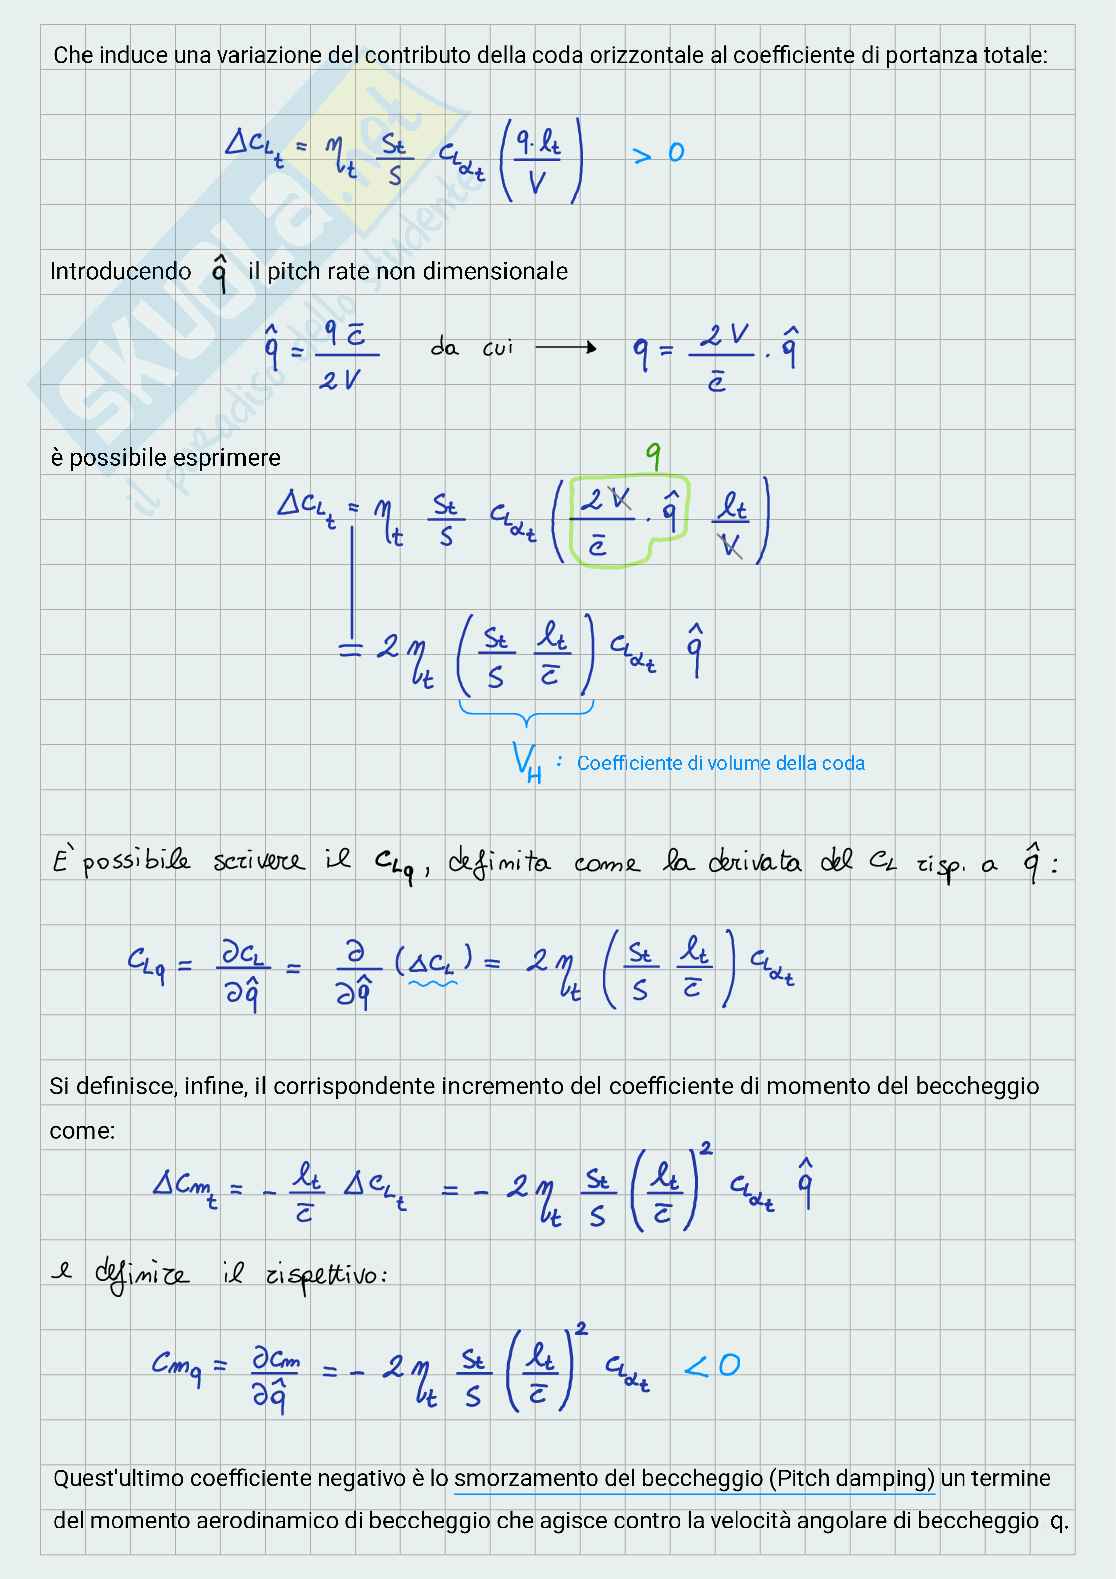 Che induce una variazione del contributo della coda orizzontale al coefficiente di portanza totale:
ΔC_{L_t} = η_t \frac{S_t}{S} C_{L_{α_t}} \left( \frac{q · l_t}{V} \right) > 0
Introducendo q̂ il pitch rate non dimensionale
q̂ = \frac{q c̄}{2V} da cui ⟶ q = \frac{2V}{c̄} · q̂
è possibile esprimere
q
ΔC_{L_t} = η_t \frac{S_t}{S} C_{L_{α_t}} \left( \frac{2V}{c̄} · q̂ \frac{l_t}{V} \right)
= 2 η_t \left( \frac{S_t}{S} \frac{l_t}{c̄} \right) C_{L_{α_t}} q̂
V_H : Coefficiente di volume della coda
E' possibile scrivere il C_{L_q}, definita come la derivata del C_L risp. a q̂ :
C_{L_q} = \frac{∂C_L}{∂q̂} = \frac{∂}{∂q̂} (ΔC_L) = 2 η_t \left( \frac{S_t}{S} \frac{l_t}{c̄} \right) C_{L_{α_t}}
Si definisce, infine, il corrispondente incremento del coefficiente di momento del beccheggio
come:
ΔC_{m_t} = - \frac{l_t}{c̄} ΔC_{L_t} = - 2 η_t \frac{S_t}{S} \left( \frac{l_t}{c̄} \right)^2 C_{L_{α_t}} q̂
e definire il rispettivo:
C_{m_q} = \frac{∂C_m}{∂q̂} = - 2 η_t \frac{S_t}{S} \left( \frac{l_t}{c̄} \right)^2 C_{L_{α_t}} < 0
Quest'ultimo coefficiente negativo è lo smorzamento del beccheggio (Pitch damping) un termine
del momento aerodinamico di beccheggio che agisce contro la velocità angolare di beccheggio q.
SKUOLA.net
il paradiso dello studente